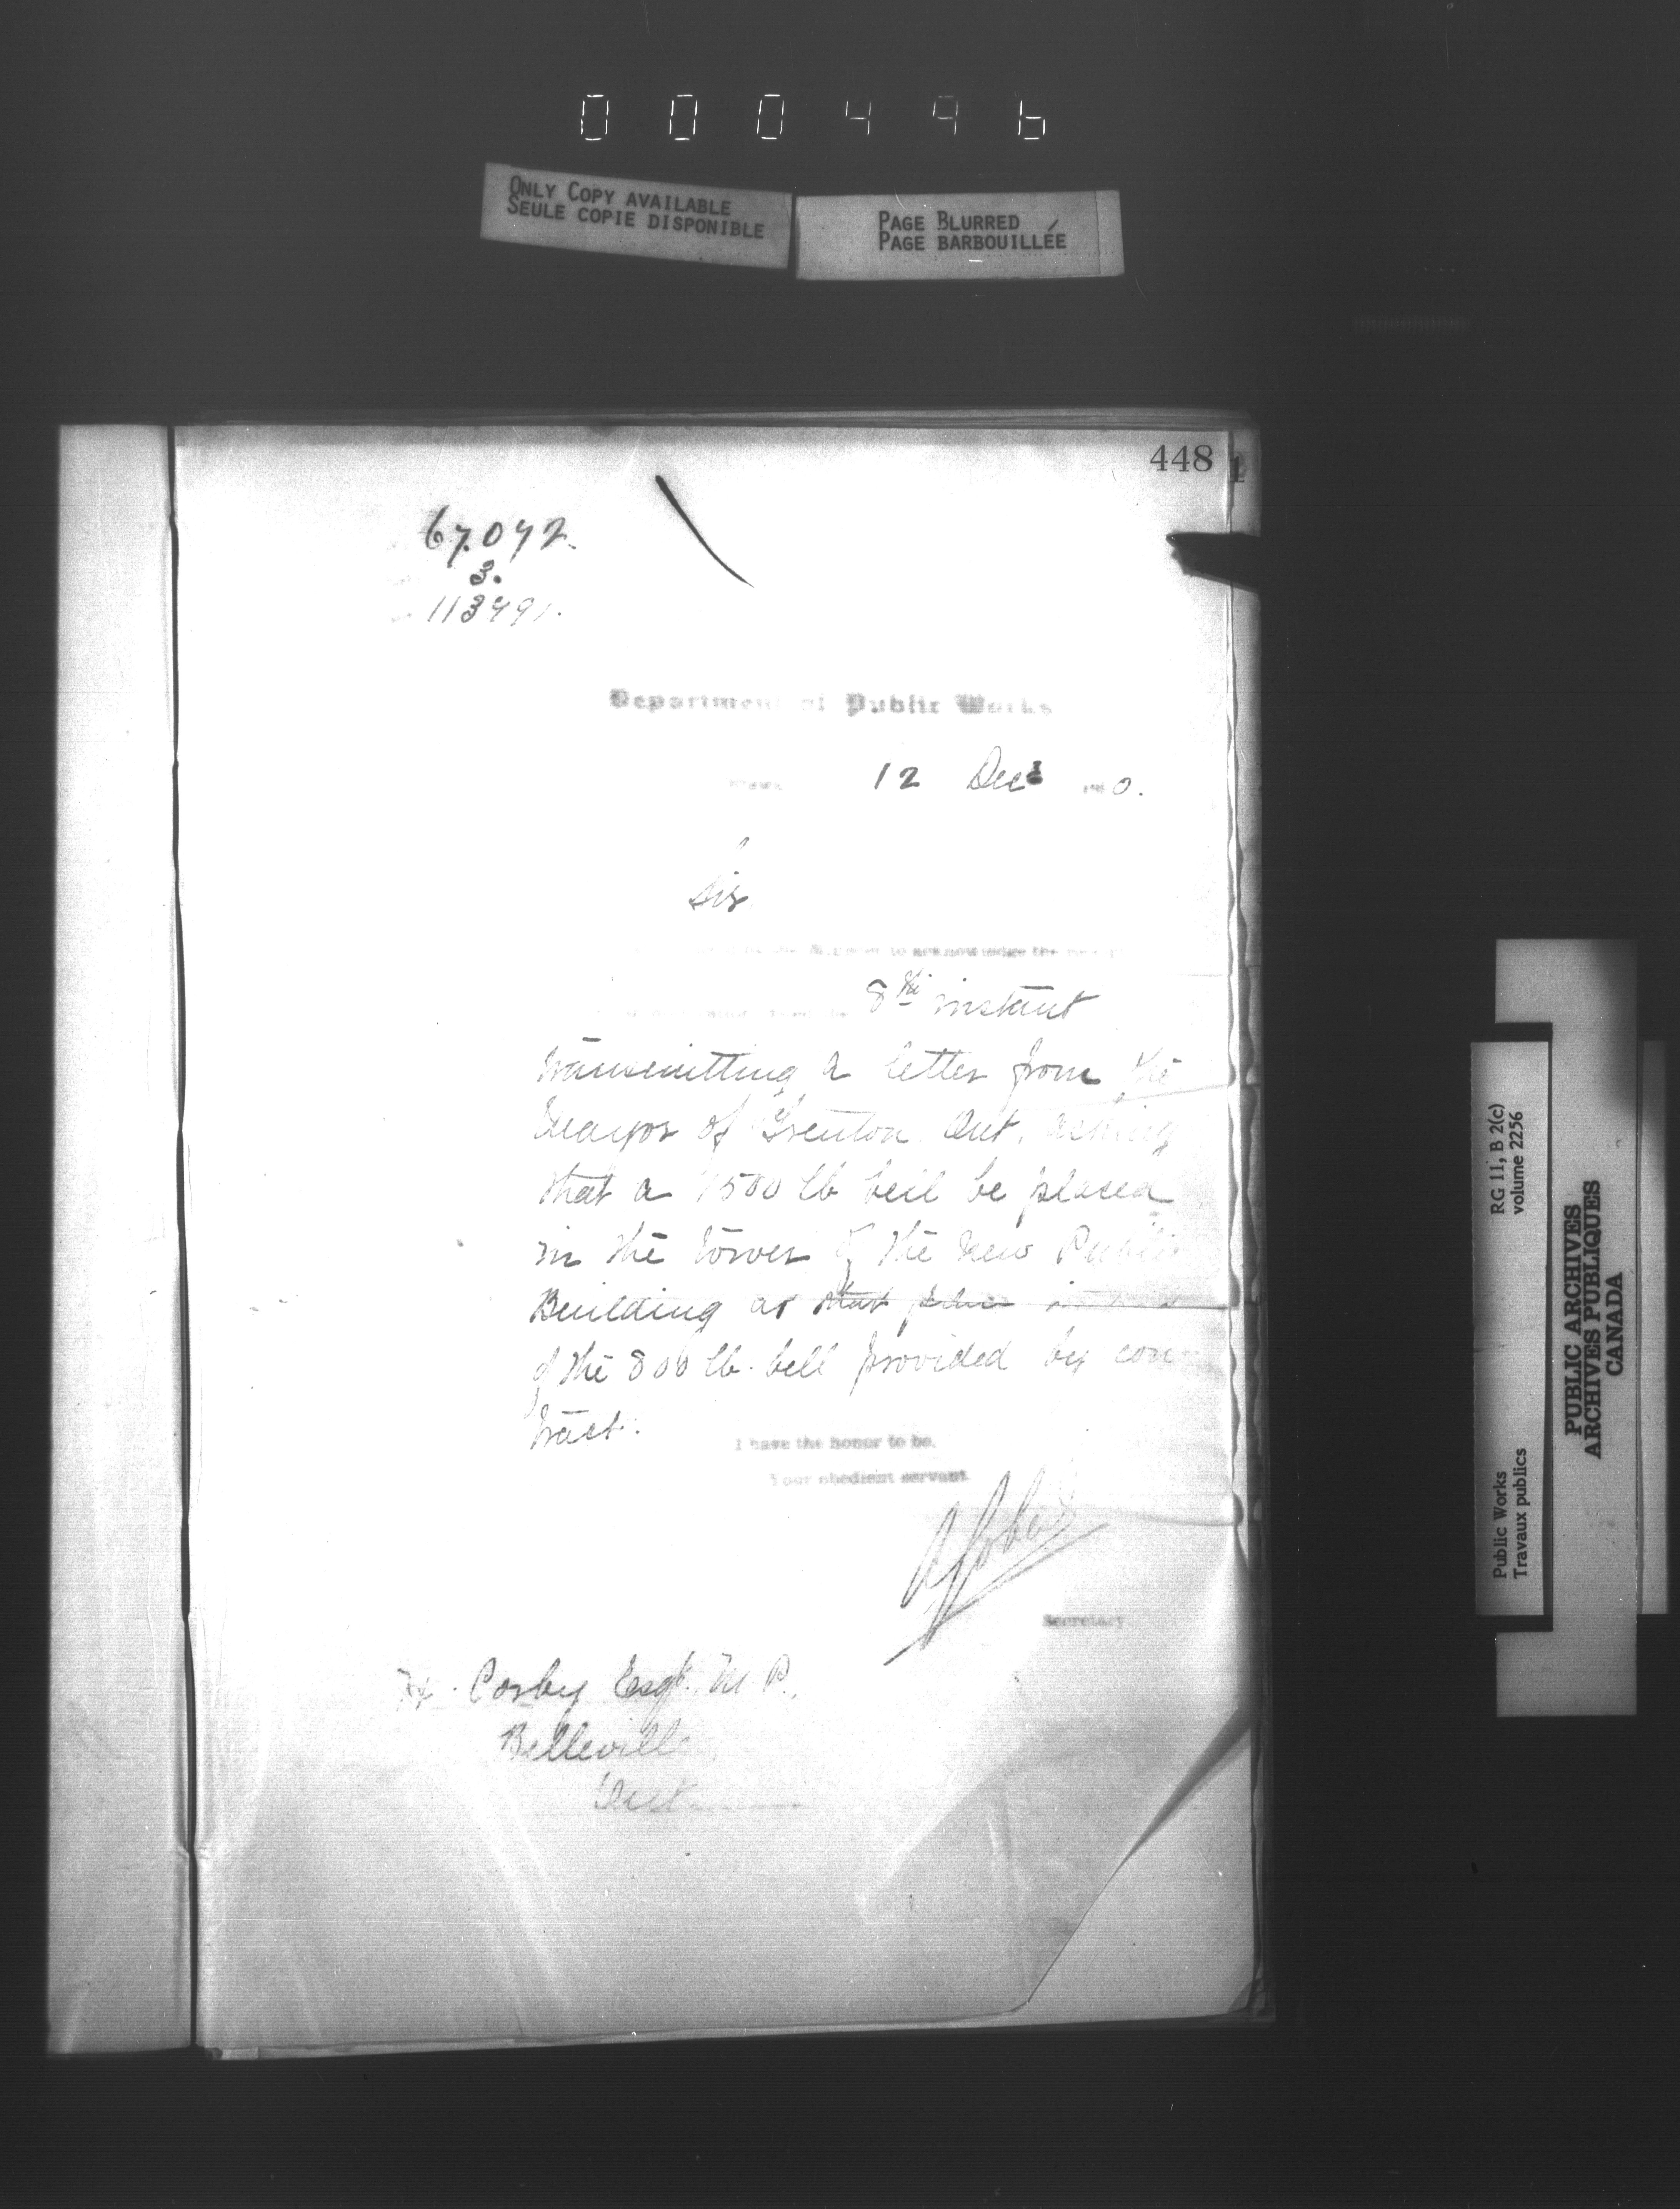 000496
ONLY COPY AVAILABLE
SEULE COPIE DISPONIBLE
PAGE BLURRED
PAGE BARBOUILLÉE
448
67.072
3.
Department of Public Works
12 Dec 0.
Sir
to acknowledge the
8th instant
transmitting a letter from the
Mayor of Trenton Ont. asking
that a 1500 lb bell be placed
in the tower of the new Public
Building at that place
of the 800 lb. bell provided by con
tract.
I have the honor to be,
Your obedient servant
Secretary
H. Corby Esqr. M.P.
Belleville
Ont
Public Works
Travaux publics
RG 11, B 2(c)
volume 2256
PUBLIC ARCHIVES
ARCHIVES PUBLIQUES
CANADA